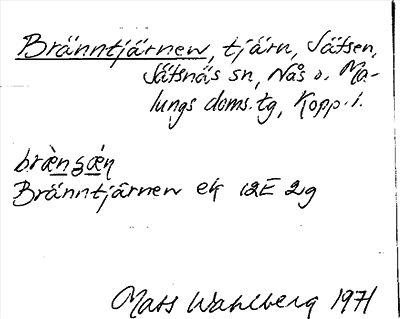 Bränntjärnen, tjärn, Jätsen,
Jätsnäs sn, Nås o. Ma-
lungs doms. tg, Kopp. l.
Bränntjärnen ek 12E 2g
Mats Wahlberg 1971